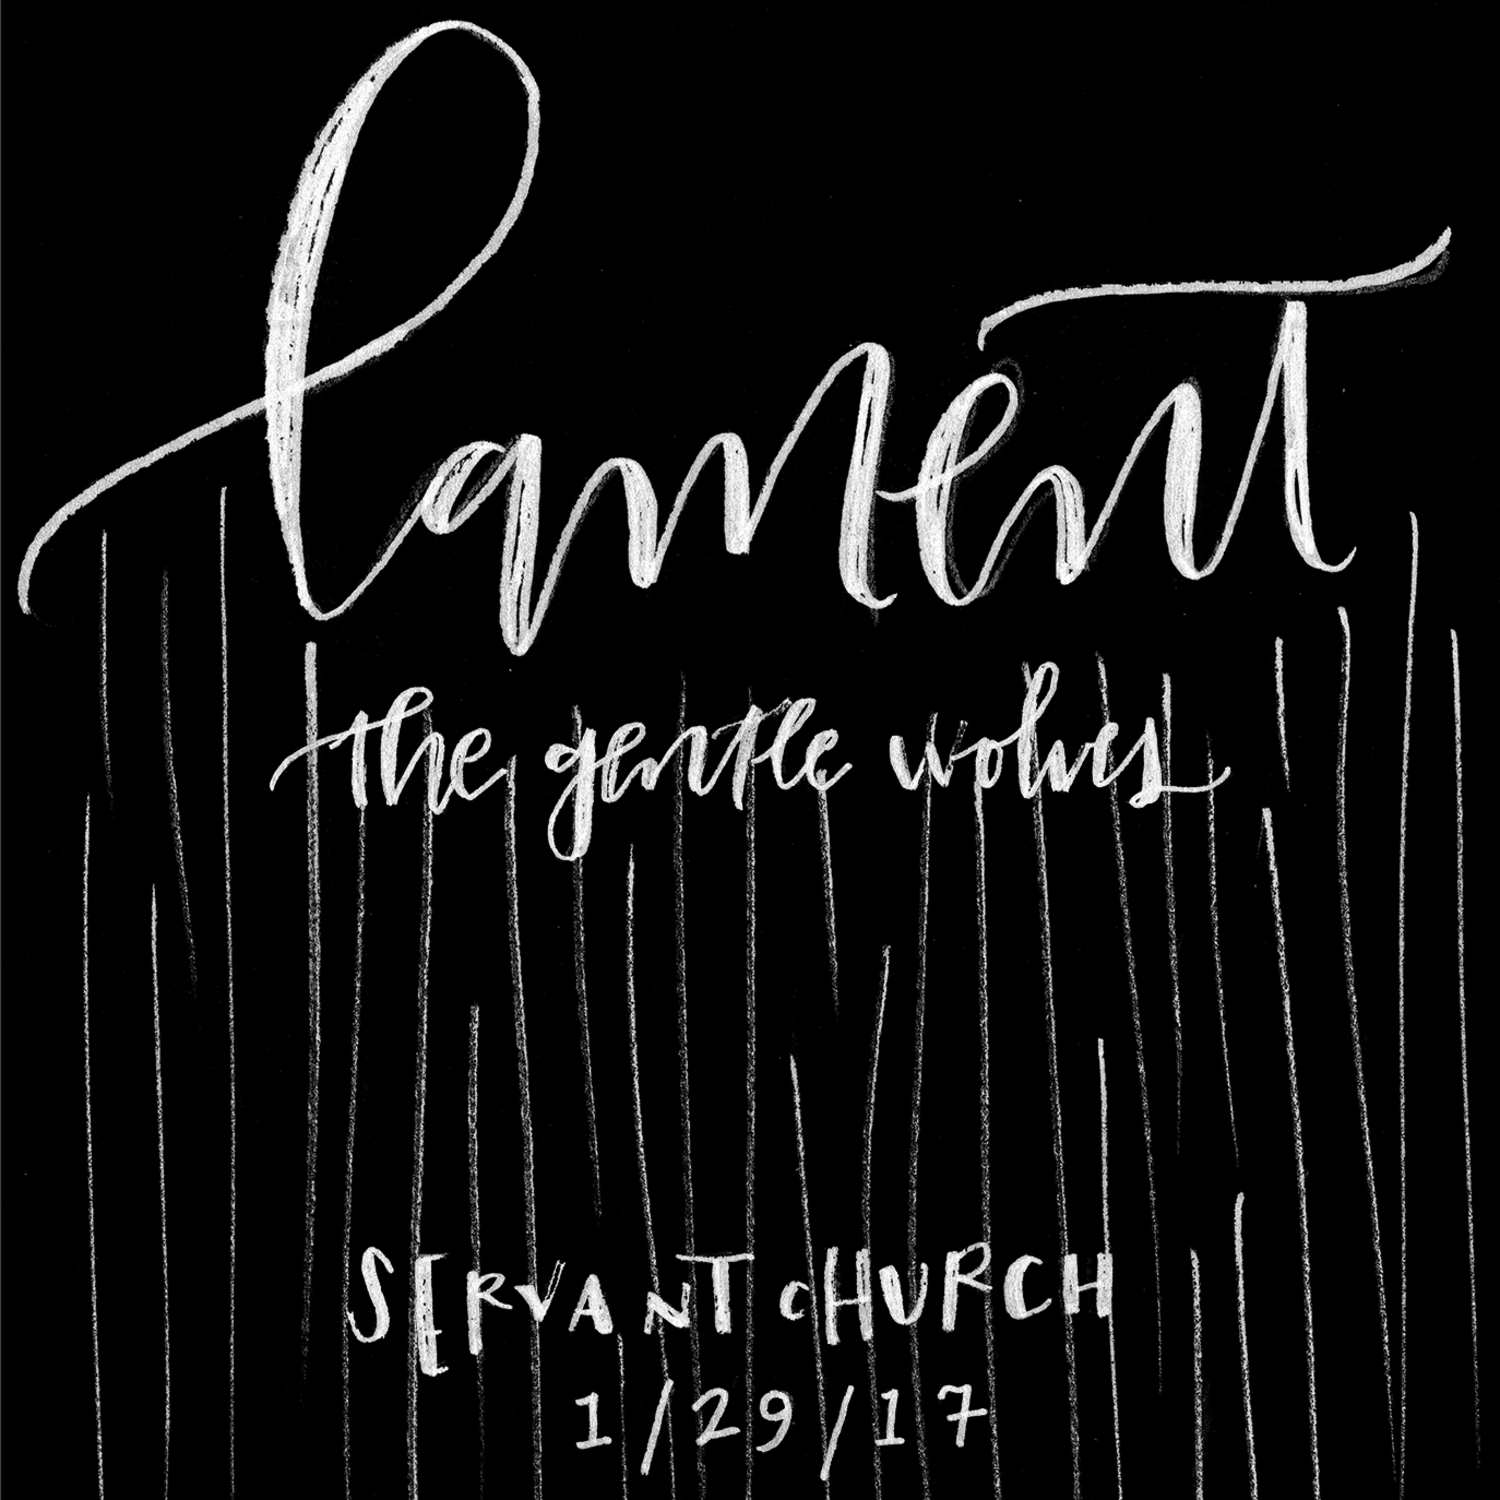 lament
the gentle wolves
SERVANT CHURCH
1/29/17